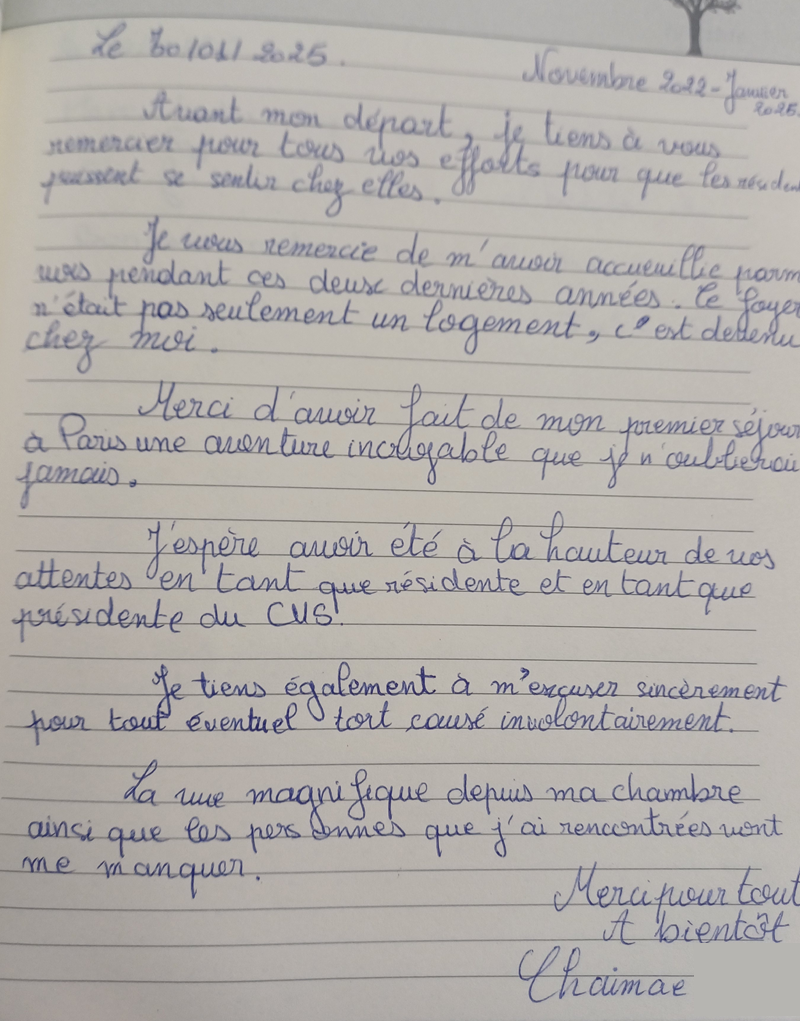 Le 30/01/2025.
Novembre 2022 - Janvier
2025.
Avant mon départ, je tiens à vous
remercier pour tous vos efforts pour que les résiden
puissent se sentir chez elles.
Je vous remercie de m'avoir accueuillie parm
vous pendant ces deux dernières années. Ce foyer
n'était pas seulement un logement, c'est devenu
chez moi.
Merci d'avoir fait de mon premier séjour
à Paris une aventure incroyable que je n'oublierai
jamais.
J'espère avoir été à la hauteur de vos
attentes en tant que résidente et en tant que
présidente du CVS!
Je tiens également à m'excuser sincèrement
pour tout éventuel tort causé involontairement.
La vue magnifique depuis ma chambre
ainsi que les personnes que j'ai rencontrées vont
me manquer.
Merci pour tout
A bientôt
Chaimae